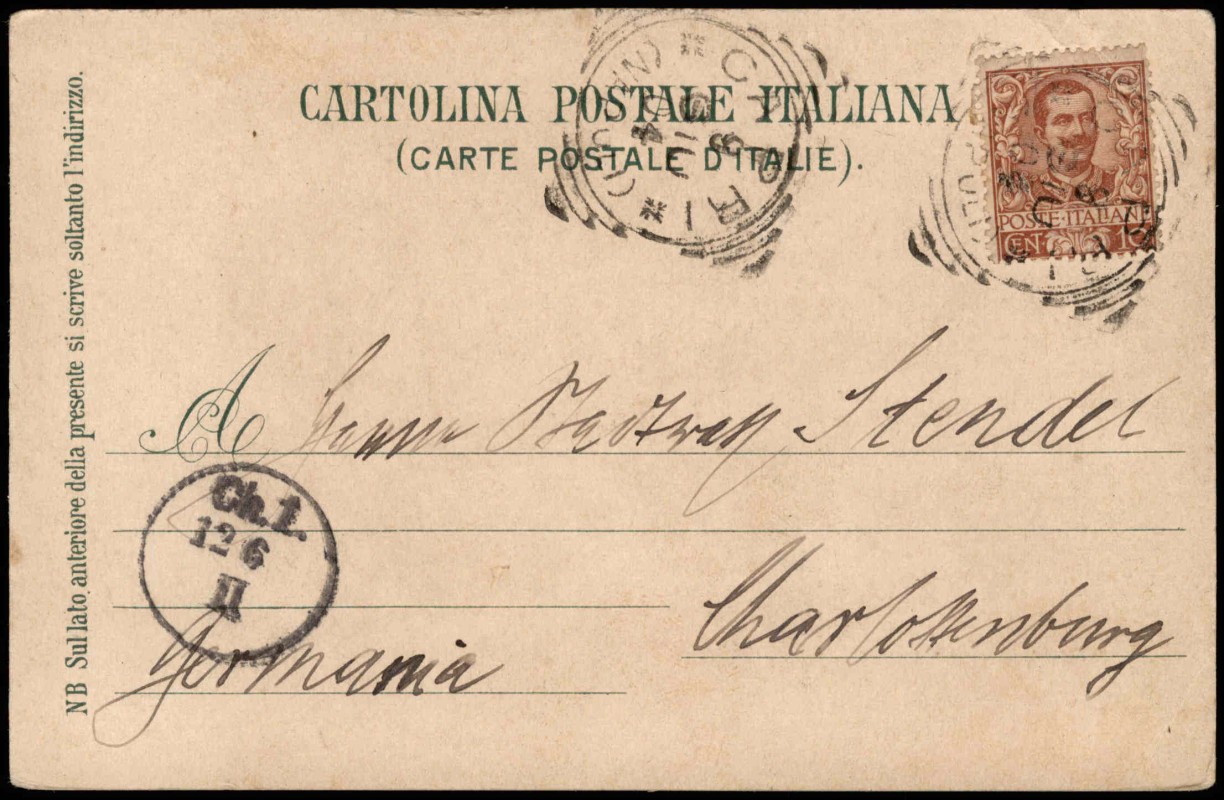 CARTOLINA POSTALE ITALIANA
(CARTE POSTALE D'ITALIE).
CAPRI (NAPOLI)
9 GIU 04
POSTE·ITALIANE
CENT 10
A Herrn Stadtrath Stendel
Ch.1.
12 6
II
Charlottenburg
Germania
NB Sul lato anteriore della presente si scrive soltanto l'indirizzo.